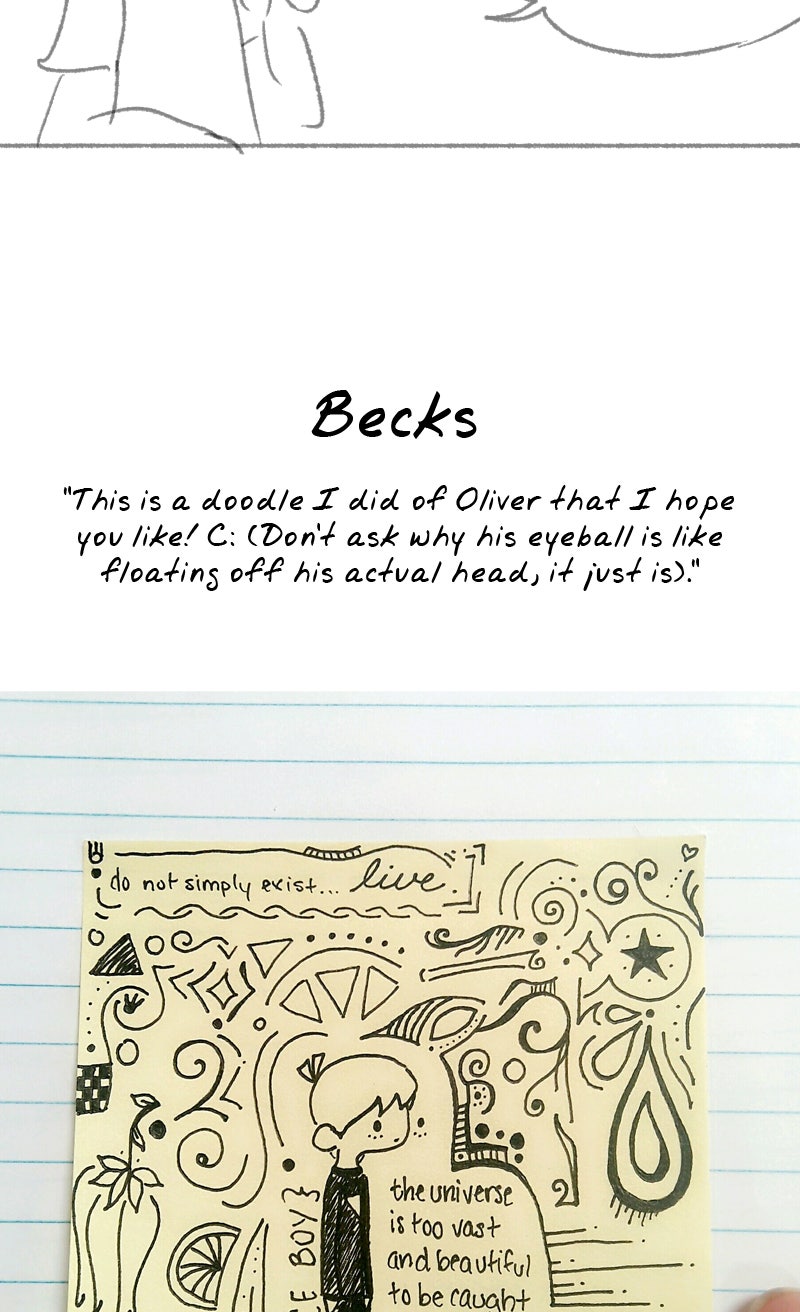 Becks
"This is a doodle I did of Oliver that I hope
you like! C: (Don't ask why his eyeball is like
floating off his actual head, it just is)."
do not simply exist... live.
BOY}
the universe
is too vast
and beautiful
to be caught